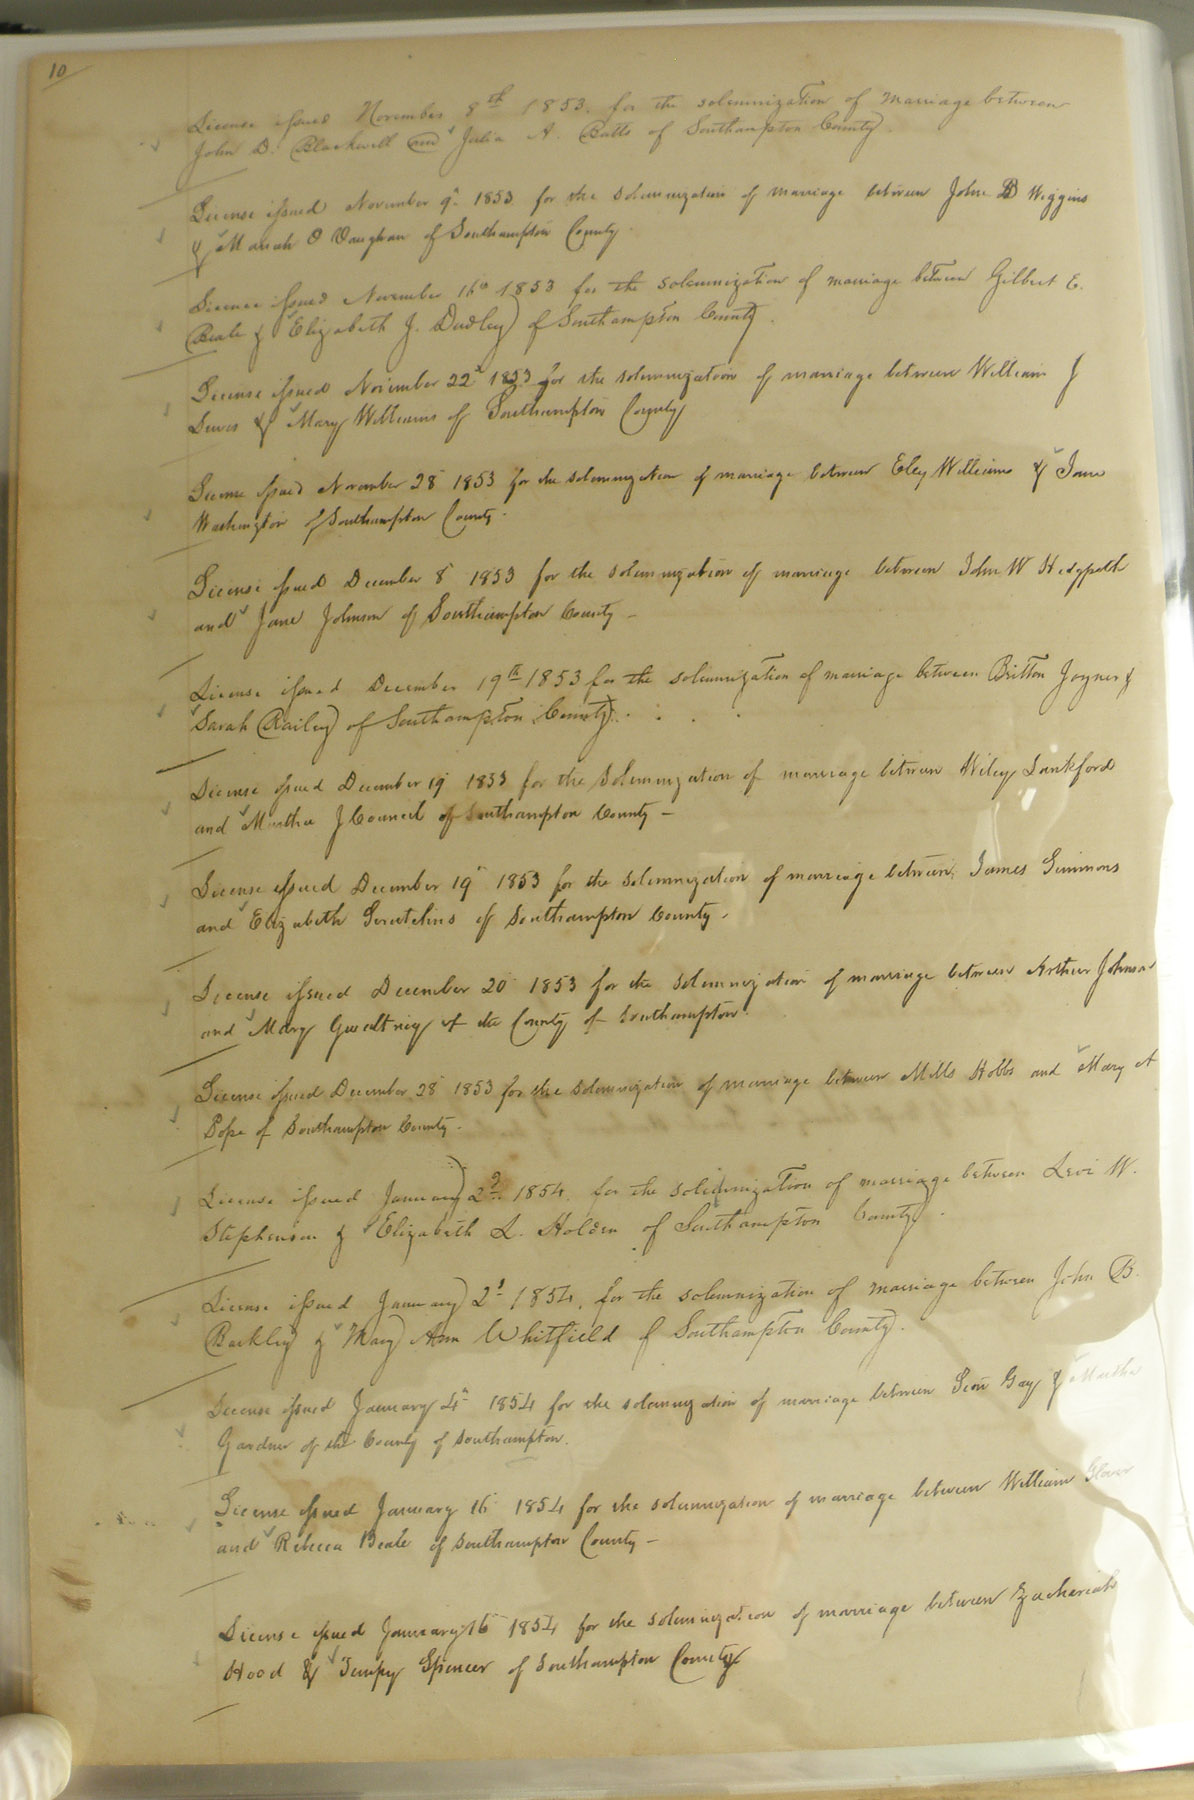 10
License issued November 8th 1853. for the solemnization of marriage between
John D. Blackwell and Julia A. Batts of Southampton County.
License issued November 9th 1853 for the solemnization of marriage between John B Wiggins
& Mariah O Vaughan of Southampton County.
License issued November 16th 1853 for the solemnization of marriage between Gilbert E.
Beale & Elizabeth J. Dudley of Southampton County.
License issued November 22d 1853 for the solemnization of marriage between William J
& Mary Williams of Southampton County
License issued November 28 1853 for the solemnization of marriage between Eley Williams & Jane
Washington of Southampton County.
License issued December 8 1853 for the solemnization of marriage between John W Hedgpeth
and Jane Johnson of Southampton County –
License issued December 19th 1853 for the solemnization of marriage between Britton Joyner &
Sarah Railey of Southampton County.
License issued December 19 1853 for the solemnization of marriage between Wiley Lankford
and Martha J Council of Southampton County –
License issued December 19th 1853 for the solemnization of marriage between James Simmons
and Elizabeth of Southampton County.
License issued December 20 1853 for the solemnization of marriage between Arthur Johnson
and Mary Gwaltney of the County of Southampton.
License issued December 28 1853 for the solemnization of marriage between Mills Hobbs and Mary A
Pope of Southampton County.
License issued January 2d 1854. for the solemnization of marriage between Levi W.
Stephenson & Elizabeth L. Holden of Southampton County.
License issued January 2d 1854, for the solemnization of marriage between John B.
Barkley & Mary Ann Whitfield of Southampton County.
License issued January 4th 1854 for the solemnization of marriage between Gay & Martha
Gardner of the County of Southampton.
License issued January 16 1854 for the solemnization of marriage between William Glover
and Rebecca Beale of Southampton County –
License issued January 16 1854 for the solemnization of marriage between Zachariah
Hood & Tempy Spencer of Southampton County